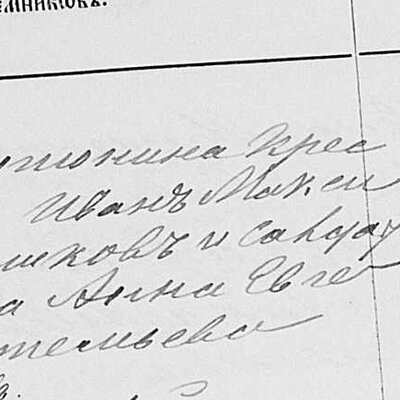 емниковъ.
нтонина Крес
Иванъ Макси
шковъ и солдат
а Анна Евге
тельева